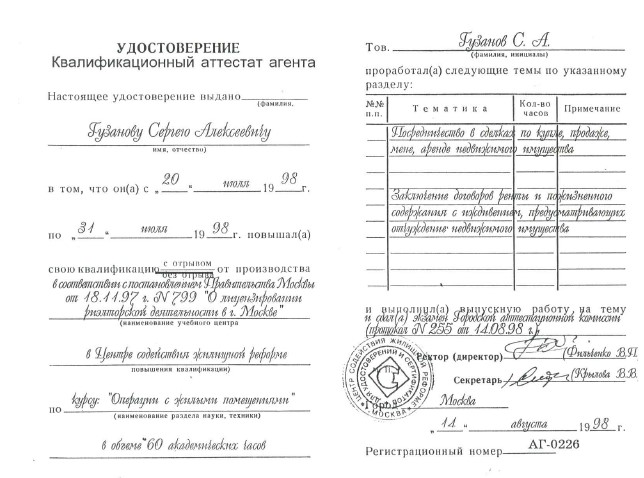 УДОСТОВЕРЕНИЕ
Квалификационный аттестат агента
Настоящее удостоверение выдано
(фамилия,
Гузанову Сергею Алексеевичу
имя, отчество)
в том, что он(а) с „ 20 “ июля 19 98 г.
по „ 31 “ июля 19 98 г. повышал(а)
свою квалификацию с отрывом от производства
без отрыва
в соответствии с постановлением Правительства Москвы
от 18.11.97 г. N 799 "О лицензировании
риэлторской деятельности в г. Москве"
(наименование учебного центра
в Центре содействия жилищной реформе
повышения квалификации)
по курсу: "Операции с жилыми помещениями"
(наименование раздела науки, техники)
в объеме 60 академических часов
Тов. Гузанов С. А.
(фамилия, инициалы)
проработал(а) следующие темы по указанному
разделу:
№№ п.п. Тематика Кол-во часов Примечание
Посредничество в сделках по купле, продаже,
мене, аренде недвижимого имущества
Заключение договоров ренты и пожизненного
содержания с иждивением, предусматривающих
отчуждение недвижимого имущества
и выполнил(а) выпускную работу на тему
и сдал(а) экзамен Городской аттестационной комиссии
(протокол N 255 от 14.08.98 г.)
Ректор (директор) (Фильченко В.П
Секретарь (Крылова В.В.
ЦЕНТР СОДЕЙСТВИЯ ЖИЛИЩНОЙ РЕФОРМЕ
ДЛЯ УДОСТОВЕРЕНИЙ И СЕРТИФИКАТОВ
МОСКВА
Город Москва
„ 14 “ августа 1998 г.
Регистрационный номер АГ-0226